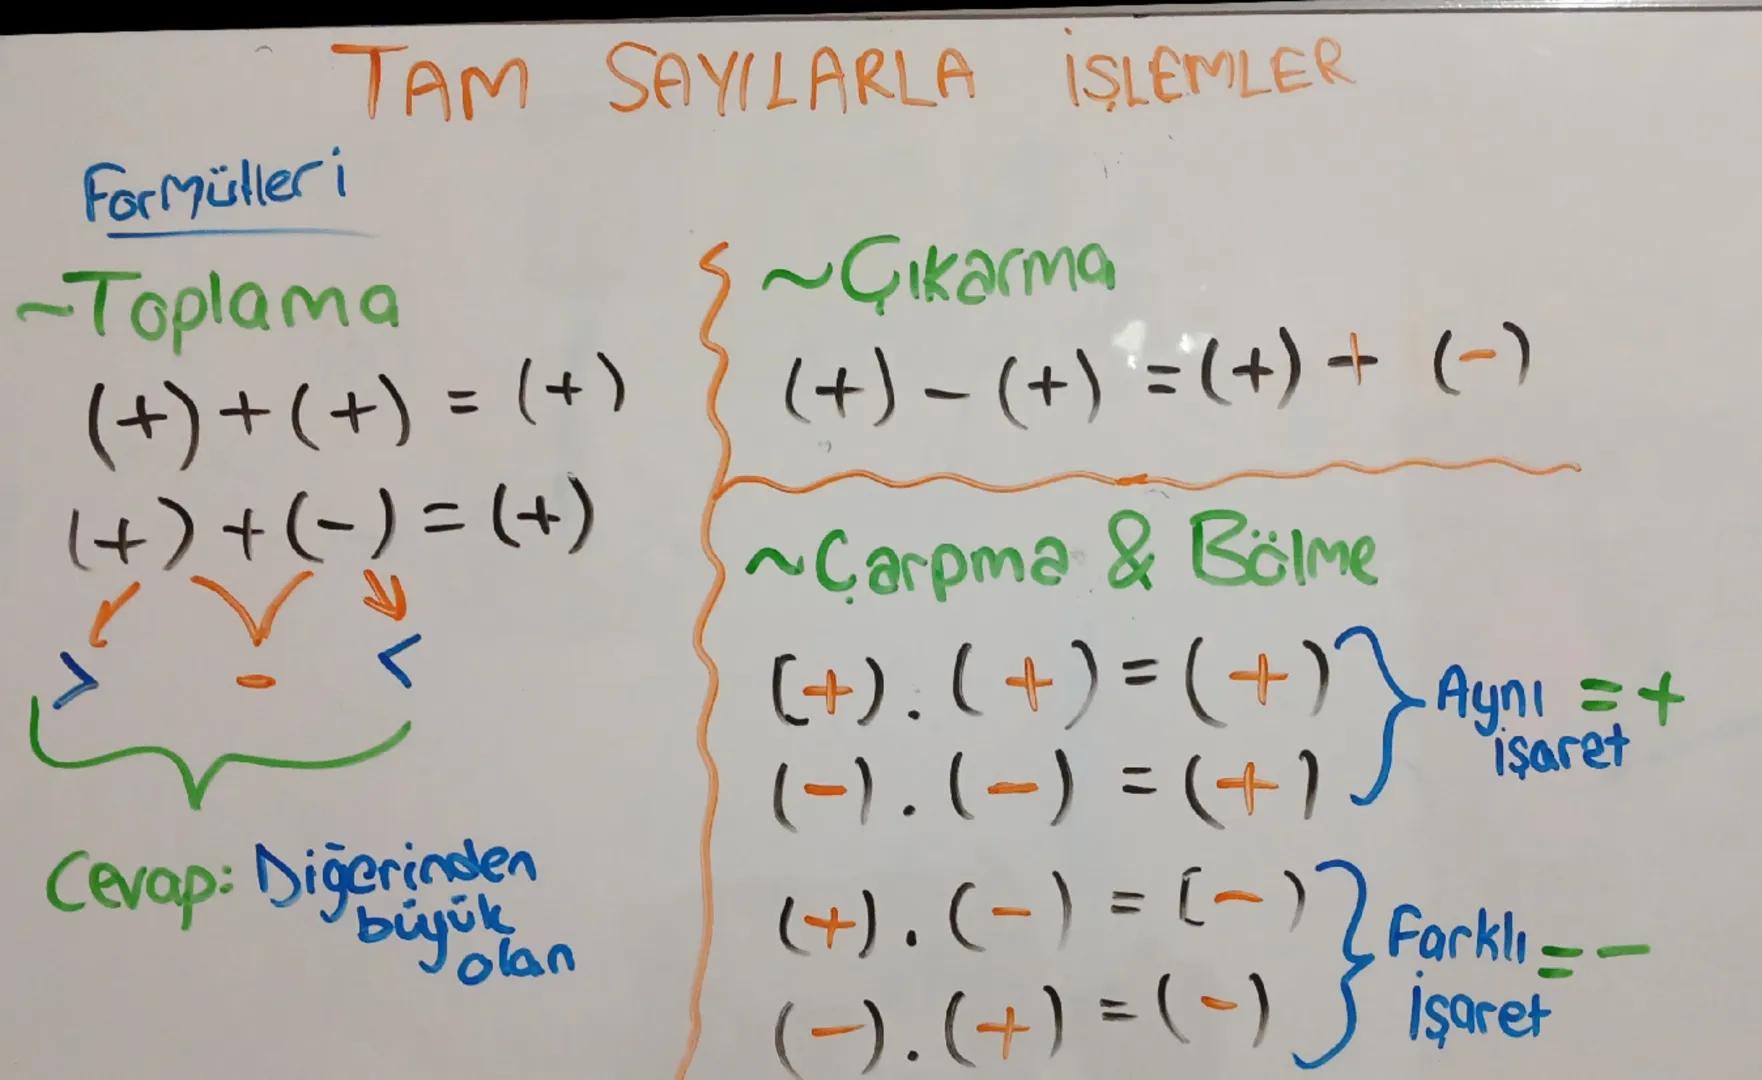 TAM SAYILARLA İŞLEMLER
Formülleri
~Toplama
(+)+(+) = (+)
(+)+(-) = (+)
> - <
Cevap: Diğerinden
büyük
olan
~Çıkarma
(+) - (+) = (+) + (-)
~Çarpma & Bölme
(+).(+) = (+)
(-).(-) = (+)
Aynı = +
işaret
(+).(-) = (-)
(-).(+) = (-)
Farklı = -
işaret